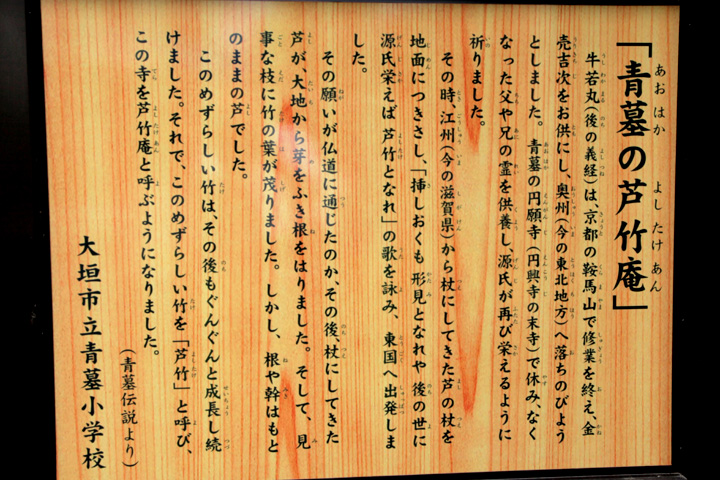 「青墓の芦竹庵」
牛若丸(後の義経)は、京都の鞍馬山で修業を終え、金
売吉次をお供にし、奥州(今の東北地方)へ落ちのびよう
としました。青墓の円願寺(円興寺の末寺)で休み、なく
なった父や兄の霊を供養し、源氏が再び栄えるように
祈りました。
その時、江州(今の滋賀県)から杖にしてきた芦の杖を
地面につきさし、「挿しおくも 形見となれや 後の世に
源氏栄えば 芦竹となれ」の歌を詠み、東国へ出発しま
した。
その願いが仏道に通じたのか、その後、杖にしてきた
芦が、大地から芽をふき根をはりました。そして、見
事な枝に竹の葉が茂りました。しかし、根や幹はもと
のままの芦でした。
このめずらしい竹は、その後もぐんぐんと成長し続
けました。それで、このめずらしい竹を「芦竹」と呼び、
この寺を芦竹庵と呼ぶようになりました。
(青墓伝説より)
大垣市立青墓小学校